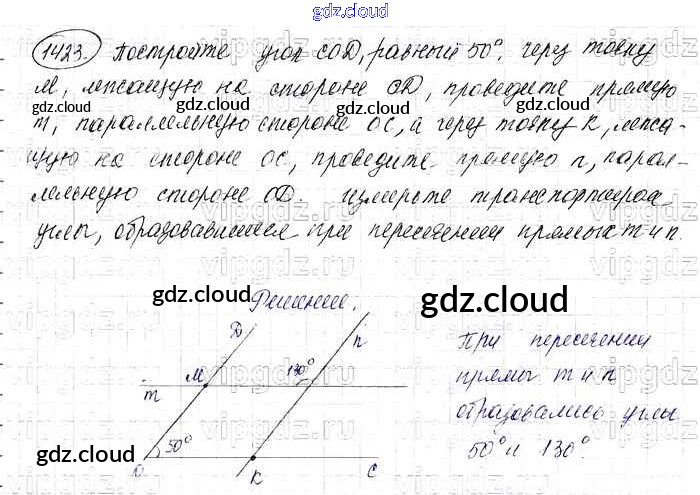 gdz.cloud
1423. Постройте угол COD, равный 50°. Через точку
M, лежащую на стороне OD, проведите прямую
m, параллельную стороне OC, а через точку K, лежа-
щую на стороне OC, проведите прямую n, парал-
лельную стороне OD. Измерьте транспортиром
углы, образовавшиеся при пересечении прямых m и n.
gdz.cloud gdz.cloud gdz.cloud
vipgdz.ru
Решение.
gdz.cloud gdz.cloud
D n
M 130°
m
50°
O K C
При пересечении
прямых m и n
образовались углы
50° и 130°.
gdz.cloud gdz.cloud gdz.cloud